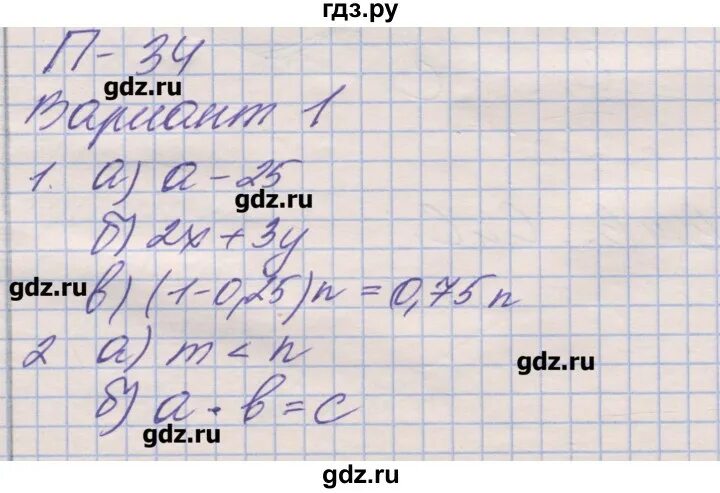 гдз.ру
П-34
gdz.ru
Вариант 1
1. а) a - 25
gdz.ru
б) 2x + 3y
gdz.ru
в) (1-0,25)n = 0,75n
2 а) m < n
gdz.ru
б) a · b = c
gdz.ru
gdz.ru